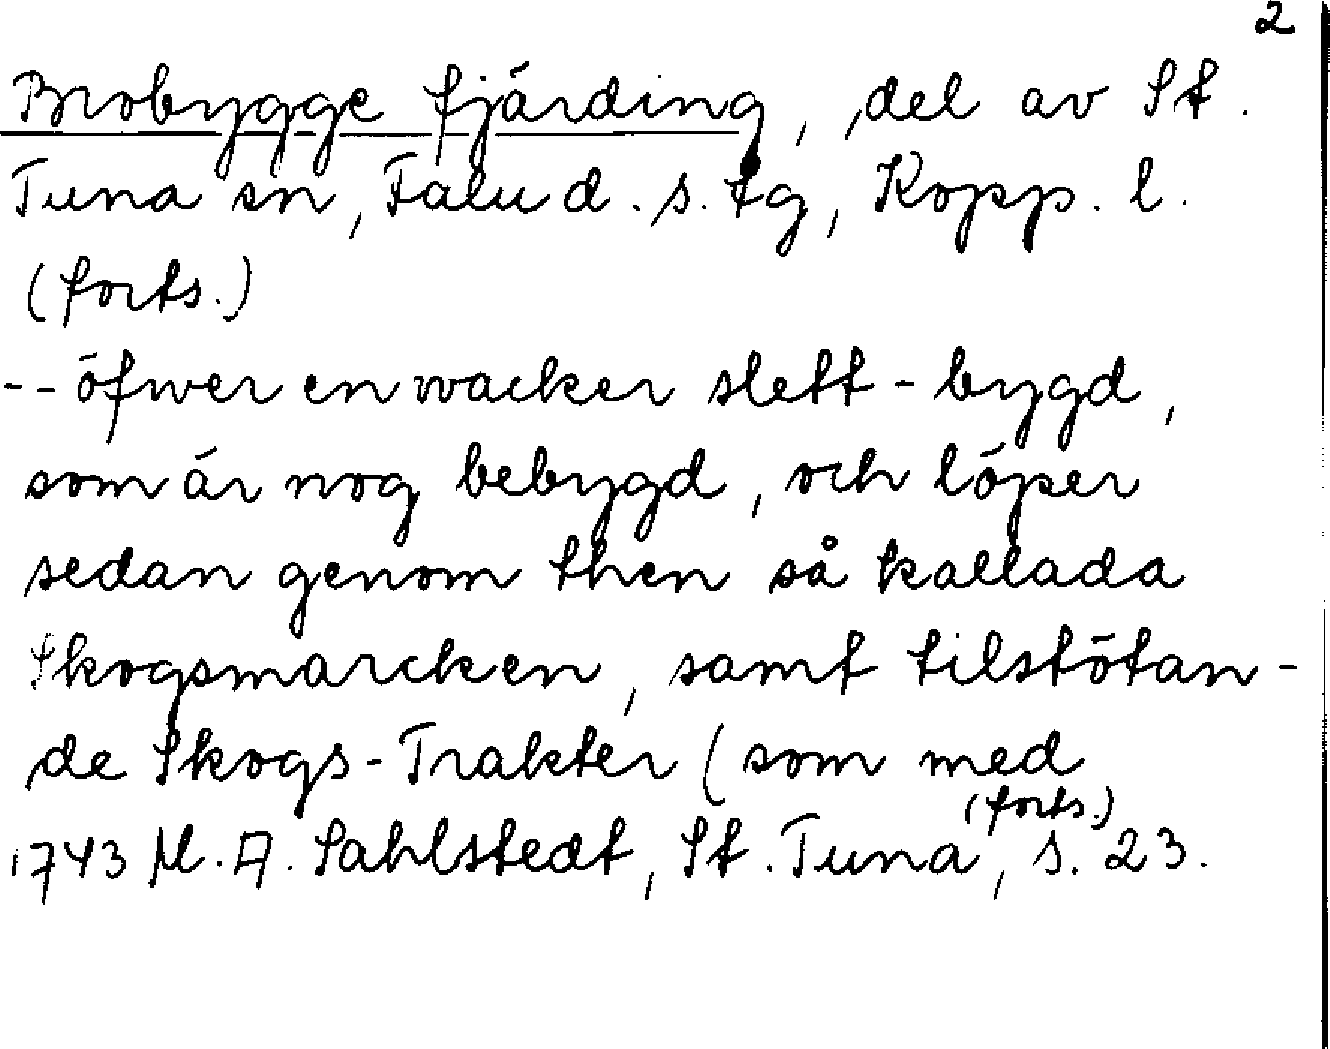 2
Brobygge fjärding, del av St.
Tuna sn, Falu d. s. tg, Kopp. l.
(forts.)
-- öfwer en wacker slett-bygd,
som är nog bebygd, och löper
sedan genom then så kallada
Skogsmarcken, samt tilstötan-
de Skogs-Trakter (som med
(forts.)
1743 M. A. Sahlstedt, St. Tuna, s. 23.